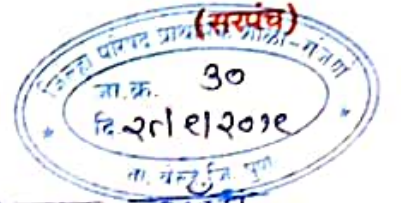 (सरपंच)
जिल्हा परिषद प्राथमिक शाळा
जा.क्र. 30
दि. २८/९/२०१९
ता. वेल्हे, जि. पुणे